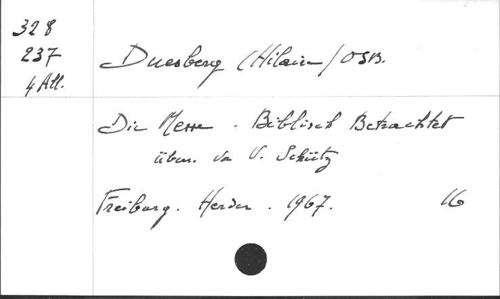 328
237
4 All.
Duesberg (Hilaire) OSB.
Die Messe . Biblisch Betrachtet
übers. von V. Schütz
Freiburg . Herder . 1967. 16